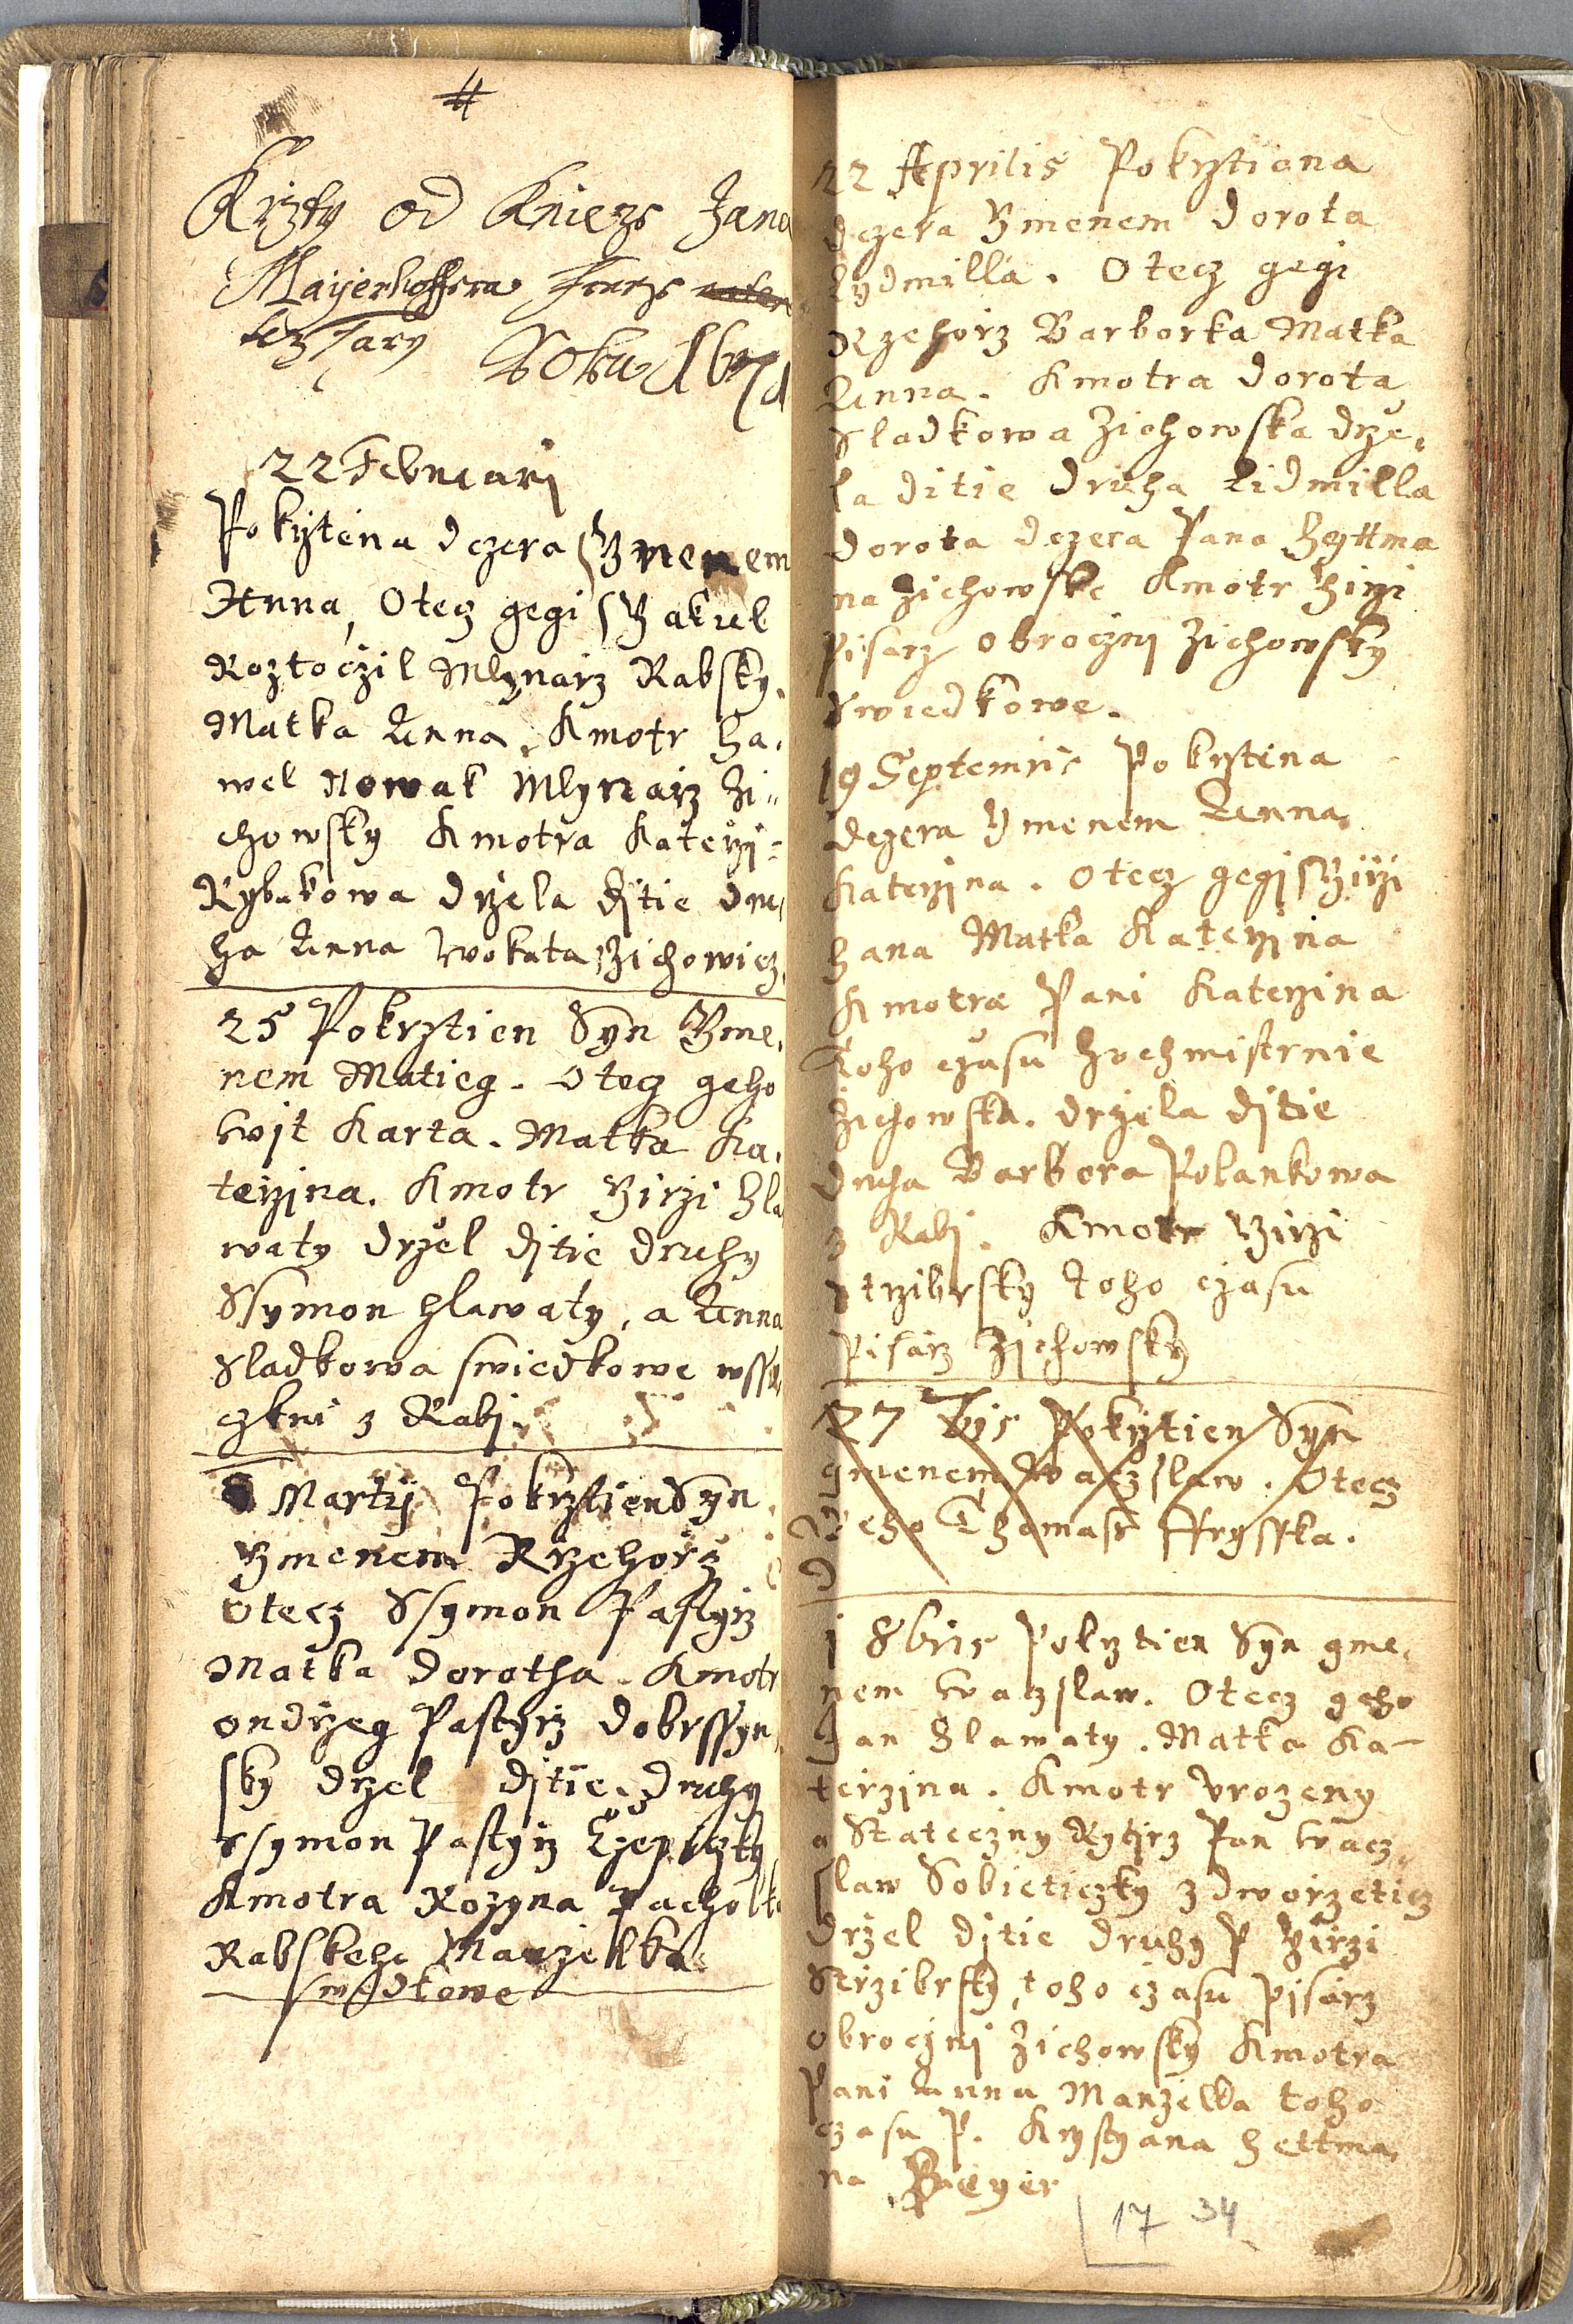 #
Krzty od Knieze Jana
Mayerhoffera
Roku
22 Februarj
Pokrztena dczera Ymenem
Anna, Otecz gegi Yakub
Roztoczil Mlynarz Rabsky.
Matka Anna. Kmotr Ha,
wel Nowak Mlynarz Zi„
chowsky Kmotra Katerzi=
Rybakowa drzela djtie dru
ha Anna Wokata Zichowicz
25 Pokrztien Syn Yme,
nem Matieg. Otecz geho
Wjt Karta. Matka Ka,
terzjna. Kmotr Yirzi Hla
waty drzel djtie druhy
Ssymon Hlawaty, a Anna
Sladkowa swiedkowe wsse,
czkni z Rabj.
Martij Pokrztien Syn
Ymenem Rzehorz
Otecz Ssymon Pastyrz
Matka Dorotha. Kmotr
Ondrzeg Pastyrz Dobrssyn,
sky drzel djtie. druhy
Ssymon Pastyrz Czepiczky
Kmotra Rozyna Pacholka
Rabskeho Manzelka
swedkowe
22 Aprilis Pokrztiena
dczera Ymenem Dorota
Lydmilla. Otecz gegi
Rzehorz Barborka Matka
Anna. Kmotra Dorota
Sladkowa Zichowska drze,
la ditie druha Lidmilla
Dorota dczera Pana Heyttma
na Zichowske Kmotr Yirzi
Pisarz obrocznj Zichowsky
Swiedkowe.
19 Septemris Pokrztena
dczera Ymenem Anna
Katerzina. Otecz gegj Yirzi
Hana Matka Katerzina
Kmotra Pani Katerzina
toho czasu Hochmistrnie
Zichowska. drzela djtie
druha Barbora Polankowa
z Rabj. Kmotr Yirzi
Strzibrsky toho czasu
Pisarz Zichowsky
27 7bris Pokrztien Syn
gmenem Waczslaw. Otecz
geho Thomass Ffrysska.
D
j 8bris Pokrztien Syn gme,
nem Waczslaw. Otecz geho
Jan Hlawaty. Matka Ka-
terzjna. Kmotr Urozeny
a Stateczny Rytjrz Pan Wacz,
slaw Sobieticzky z dworzeticz
drzel djtie druhy P Yirzi
Strzibrsky, toho czasu Pjsarz
obrocznj Zichowsky Kmotra
Pani Anna Manzelka toho
czasu P. Krystyana Hettma,
na Bayer
17 34